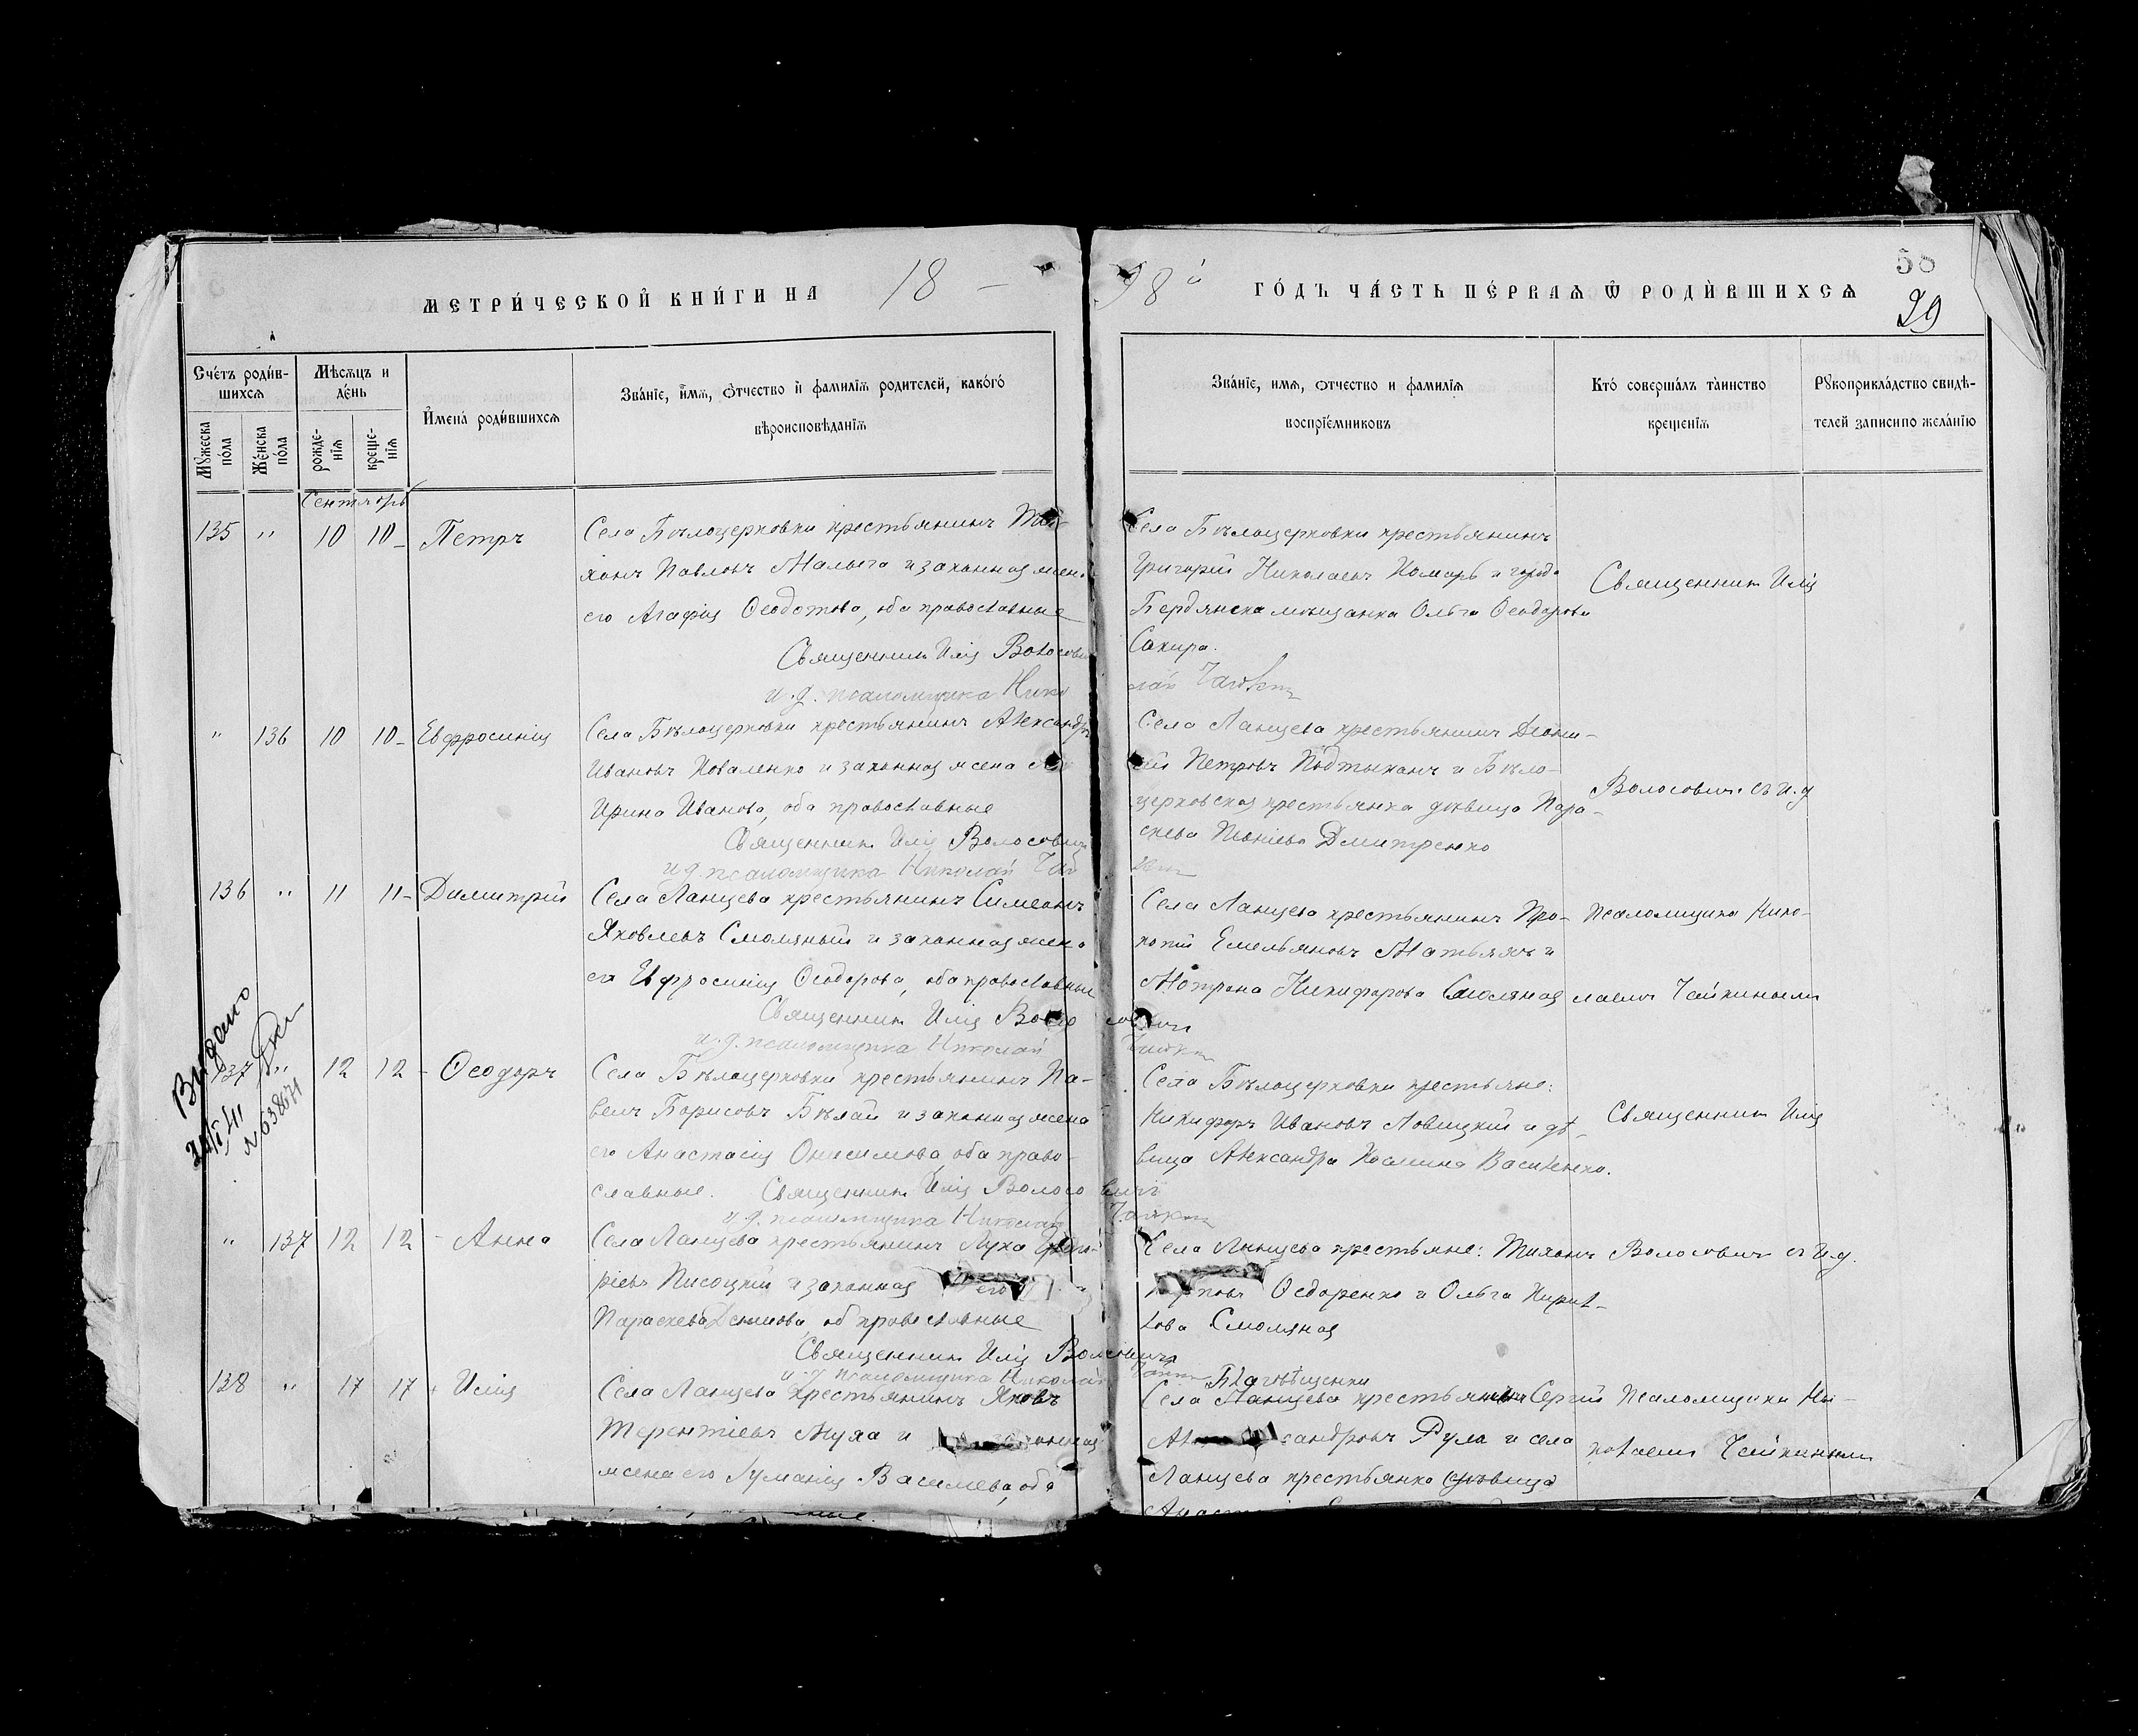 58
МЕТРИ́ЧЕСКОЙ КНИ́ГИ НА 18
98 ГО́ДЪ ЧА́СТЬ ПЕ́РВАѦ Ѿ РОДИ́ВШИХСѦ
29
Сче́тъ роди́в-
шихсѧ
Мѣсѧцъ и
де́нь
И҆мена́ роди́вшихсѧ
Зва́нїе, и҆мѧ, ѻ҆тчество и҆ фамилїѧ родителей, како́гѡ
вѣроисповѣданїѧ
Мꙋжеска
по́ла
Же́нска
по́ла
рожде-
нїѧ
креще-
нїѧ
Зва́нїе, имѧ, ѻтчество и фамилїѧ
воспрїе́мниковъ
Кто̀ соверша́лъ та̀инство
крещенїѧ
Рꙋкоприкла́дство свидѣ-
телей записи по жела́нїю
Сентябрь
135 " 10 10 Петръ
Села Бѣлоцерковки крестьянинъ Ти-
хонъ Павловъ Малыга и законная жена
его Агафія Ѳеодотова, оба православные
Священникъ Илія Волосовичъ
и.д. псаломщика Нико
лай
Села Бѣлоцерковки крестьянинъ
Григорій Николаевъ Комаръ и города
Бердянска мѣщанка Ольга Ѳеодорова
Сахира.
Священникъ Илія
" 136 10 10 Евфросинія
Села Бѣлоцерковки крестьянинъ Александръ
Ивановъ Коваленко и законная жена
Ирина Иванова, оба православные
Священникъ Илія Волосовичъ
и.д. псаломщика Николай
Села Ланцева крестьянинъ Діони-
сій Петровъ Подтыканъ и Бѣло-
церковская крестьянка дѣвица Пара-
скева Дмитренко
Волосовичъ съ и.д
136 " 11 11 Димитрій
Села Ланцева крестьянинъ Симеонъ
Яковлевъ Смоляный и законная жена
его Евфросинія Ѳеодорова, оба православные
Священникъ Илія Волосовичъ
и.д. псаломщика Николай
Села Ланцева крестьянинъ Про-
копій Емельяновъ Матвяяъ и
Мотрона Никифорова Смоляная
псаломщика Нико-
лаемъ Чайкинымъ
Выдано
№ 638671
137 " 12 12 Ѳеодоръ
Села Бѣлоцерковки крестьянинъ Па-
велъ Борисовъ Бѣлай и законная жена
его Анастасія Онисимова, оба право-
славные. Священникъ Илія Волосовичъ
и.д. псаломщика Николай
Села Бѣлоцерковки крестьяне:
Никифоръ Ивановъ Ловицкій и дѣ-
вица Александра Космина Василенко.
Священникъ Илія
" 137 12 12 Анна
Села Ланцева крестьянинъ Лука Григо-
ріевъ Писоцкій и законная его
Параскева Денисова, об православные
Священникъ Илія Волосовичъ
и.д. псаломщика Николай
Села Ланцева крестьяне: Тихонъ
Ѳедоренко и Ольга Кирил-
лова Смоляная
Волосовичъ съ и.д.
138 " 17 17 Илія
Села Ланцева крестьянинъ Яковъ
Терентіевъ Муха и законная
жена его Іуманія Василиева, оба
Благовѣщенки
Села Ланцева крестьянинъ Сергій
Александровъ Рула и села
Ланцева крестьянка дѣвица
псаломщика Ни-
колаемъ Чайкинымъ